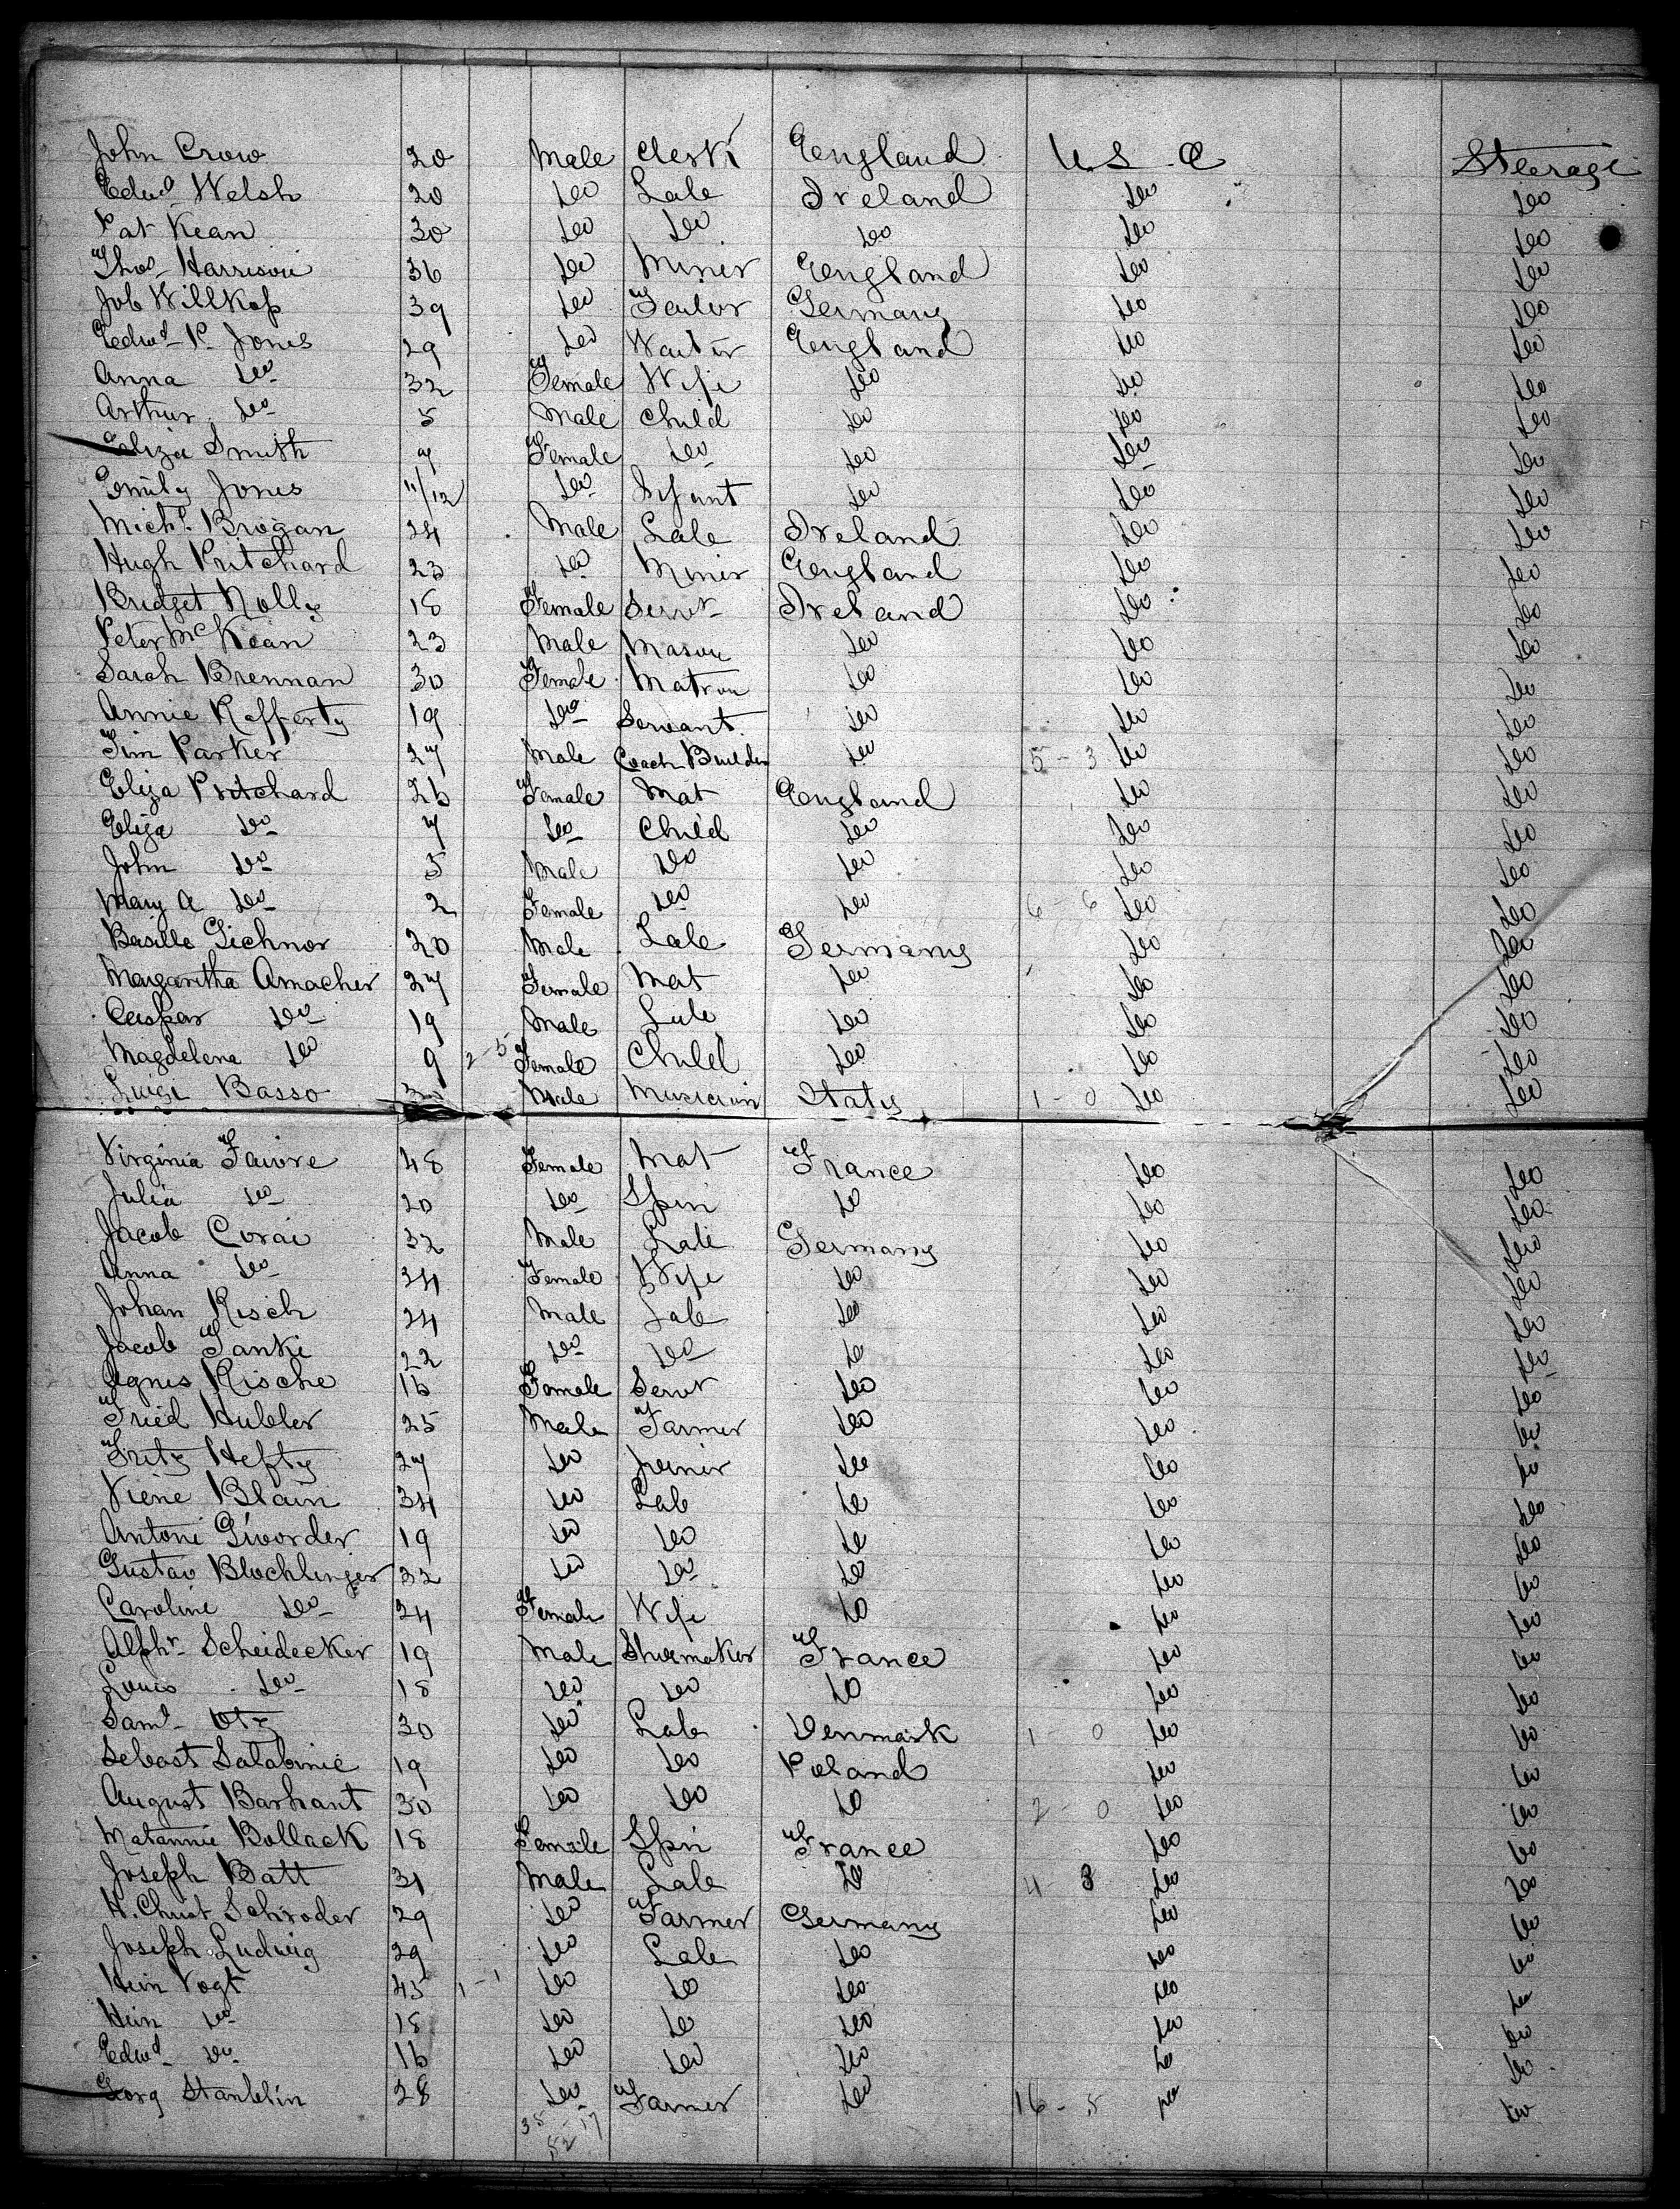 John Crow 20 Male Clerk England U S A Steerage
Edwd Welsh 20 Do Lab Ireland Do Do
Pat Kean 30 Do Do Do Do Do
Thos Harrison 36 Do Miner England Do Do
Job Willkop 39 Do Tailor Germany Do Do
Edwd P. Jones 29 Do Waiter England Do Do
Anna Do 32 Female Wife Do Do Do
Arthur Do 5 Male Child Do Do Do
Eliza Smith 7 Female Do Do Do Do
Emily Jones 11/12 Do Infant Do Do Do
Michl Brogan 24 Male Lab Ireland Do Do
Hugh Pritchard 23 Do Miner England Do Do
Bridget Nolly 18 Female Servt Ireland Do Do
Peter McKean 23 Male Mason Do Do Do
Sarah Brennan 30 Female Matron Do Do Do
Annie Rafferty 19 Do Servant Do Do Do
Jim Parker 27 Male Coach Builder Do 5 - 3 Do Do
Eliza Pritchard 26 Female Mat England Do Do
Eliza Do 7 Do Child Do Do Do
John Do 5 Male Do Do Do Do
Mary A Do 2 Female Do Do 6 - 6 Do Do
Basille Gichnor 20 Male Lab Germany Do Do
Margaritha Amacher 27 Female Mat Do Do Do
Caspar Do 19 Male Lab Do Do Do
Magdelena Do 9 2-5 Female Child Do Do Do
Luigi Basso Male Musician Italy 1 - 0 Do Do
Virginia Faivre 48 Female Mat France Do Do
Julia Do 20 Do Spin Do Do Do
Jacob Corai 32 Male Lab Germany Do Do
Anna Do 24 Female Wife Do Do Do
Johan Risch 24 Male Lab Do Do Do
Jacob Janki 22 Do Do Do Do Do
Agnes Rische 16 Female Servt Do Do Do
Fried Hubler 25 Male Farmer Do Do Do
Fritz Hefty 27 Do Joiner Do Do Do
Viene Blain 34 Do Lab Do Do Do
Antoni Gworder 19 Do Do Do Do Do
Gustav Blochlinger 32 Do Do Do Do Do
Caroline Do 24 Female Wife Do Do Do
Alphr Scheidecker 19 Male Shoemaker France Do Do
Louis Do 18 Do Do Do Do Do
Saml Otz 30 Do Lab Denmark 1 - 0 Do Do
Sebast Satabinic 19 Do Do Poland Do Do
August Barhant 30 Do Do Do 2 - 0 Do Do
Matannie Bollack 18 Female Spin France Do Do
Joseph Batt 31 Male Lab Do 4 - 3 Do Do
H. Christ Schroder 29 Do Farmer Germany Do Do
Joseph Ludwig 29 Do Lab Do Do Do
Hein Vogt 45 1-1 Do Do Do Do Do
Hein Do 18 Do Do Do Do Do
Edwd Do 16 Do Do Do Do Do
Georg Stanblin 28 Do Farmer Do 16 - 5 Do Do
35 - 17
52